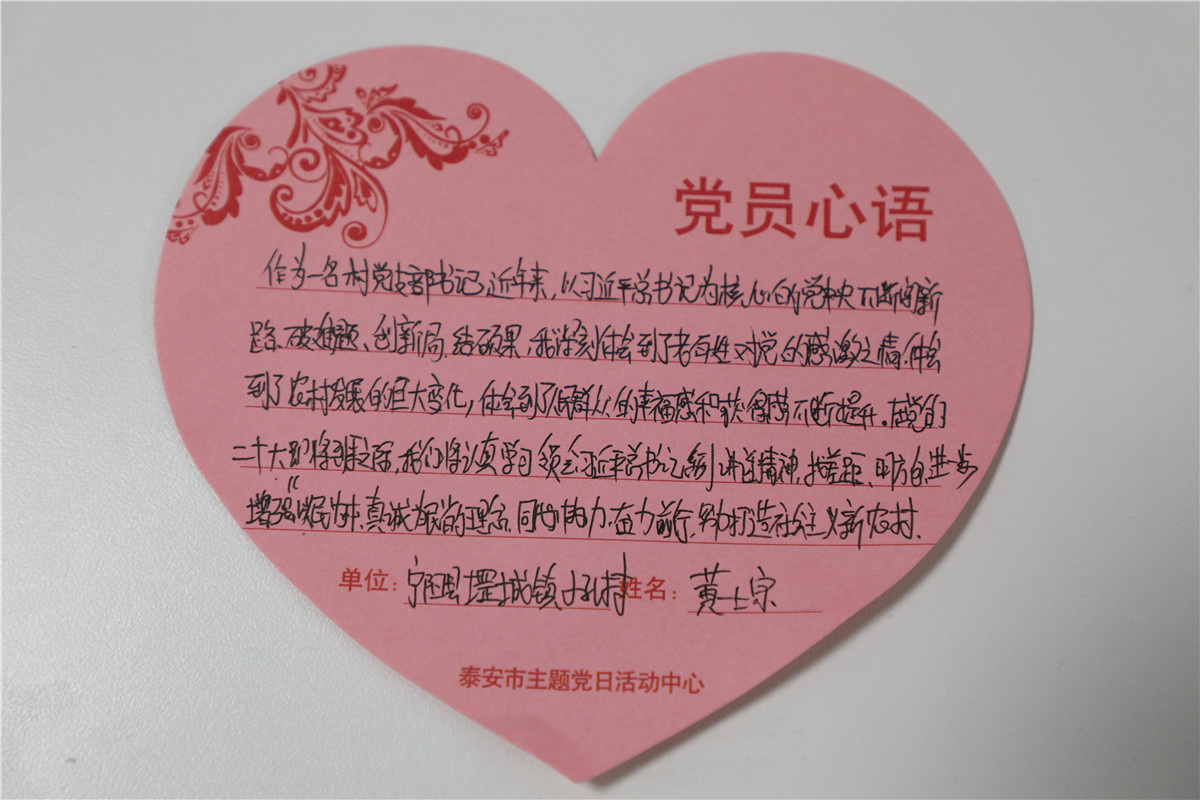 党员心语
作为一名村党支部书记,近年来,以习近平总书记为核心的党中央不断闯新
路、破难题、创新局、结硕果,我深刻体会到了老百姓对党的感激之情,体会
到了农村发展的巨大变化,体会到了人民群众的幸福感和获得感不断提升。在党的
二十大即将到来之际,我们将认真学习领会习近平总书记系列讲话精神,找差距、明方向,进一步
增强"以民为本,真诚为民"的理念,同心协力,奋力前行,努力打造社会主义新农村.
单位:宁阳县堽城镇 村 姓名:黄士宗
泰安市主题党日活动中心